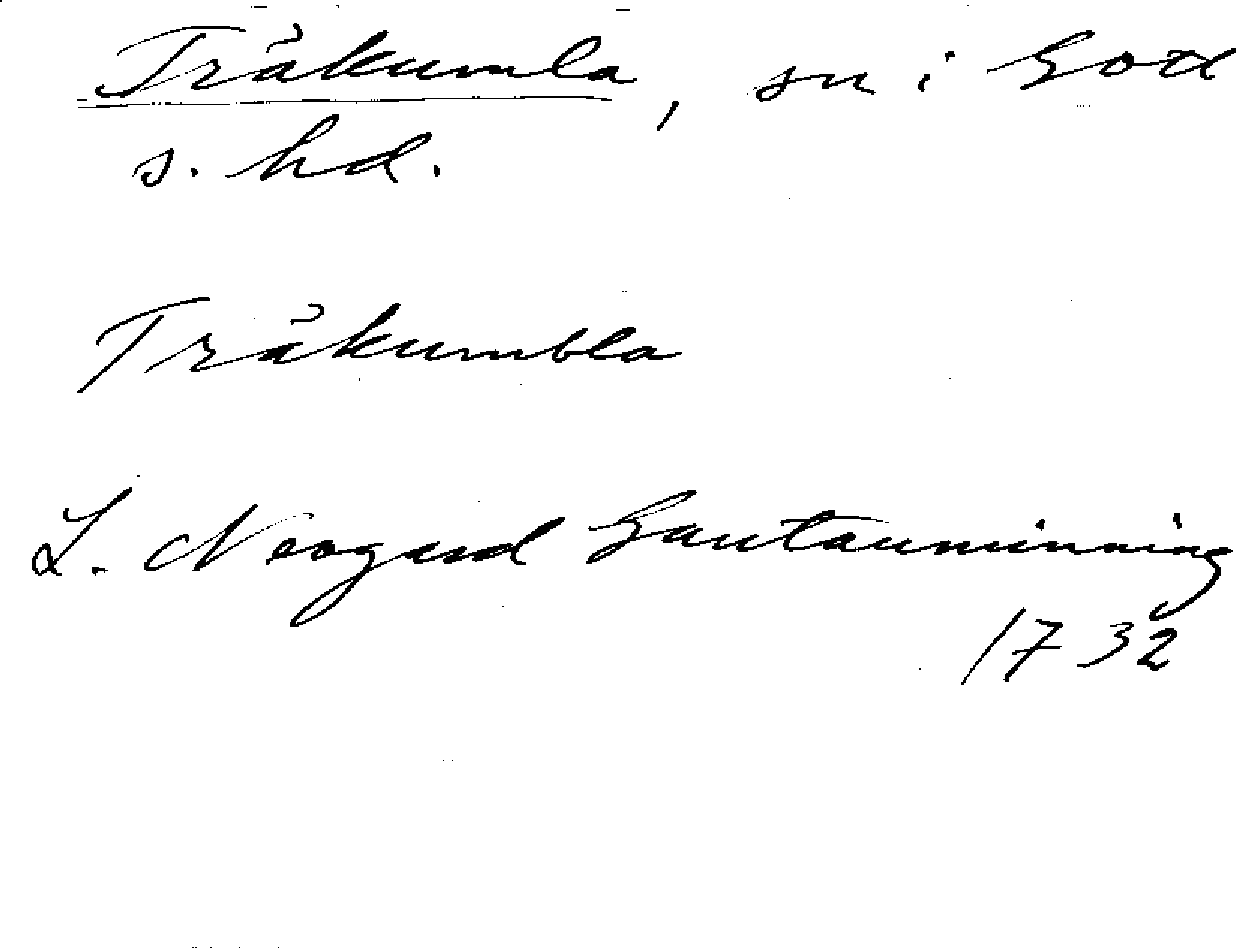 Träkumla, sn i Gotl
s. hd.
Träkumbla
L. Neogard Gautauminning
1732